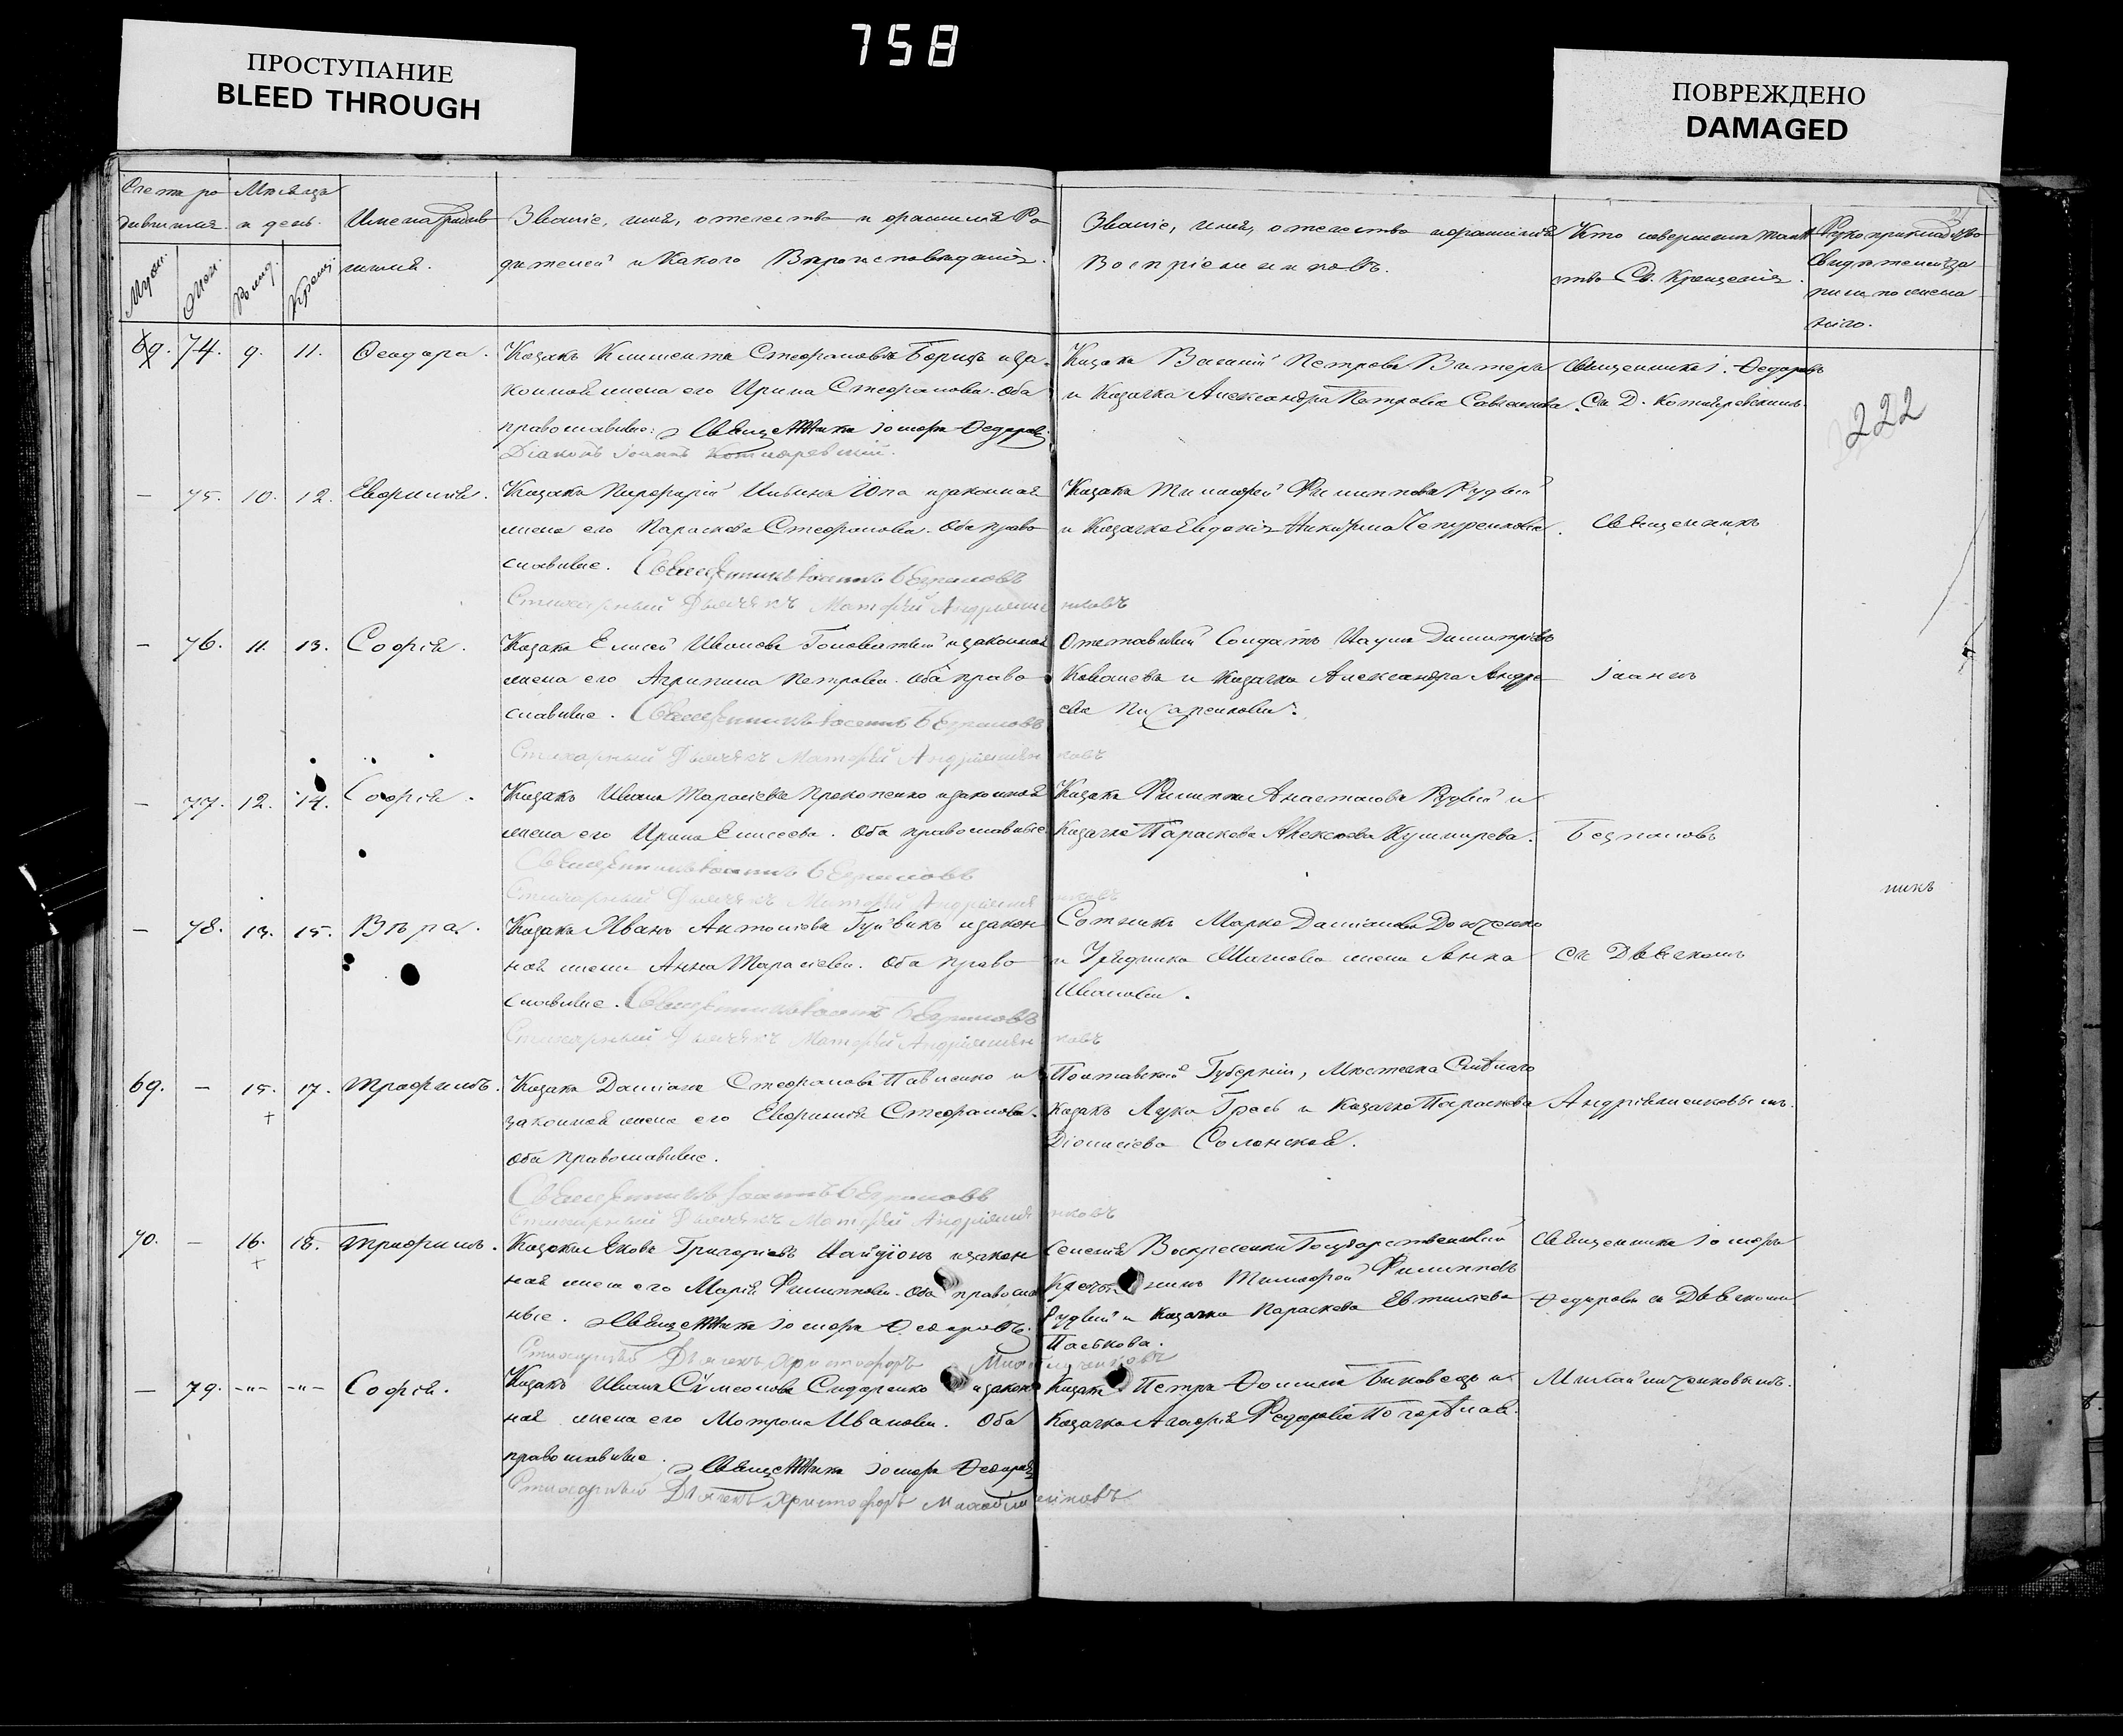 758
ПРОСТУПАНИЕ
BLEED THROUGH
ПОВРЕЖДЕНО
DAMAGED
Счетъ ро
дившихся.
Мѣсяцъ
и день.
Имена родив
шихся.
Званіе, имя, отечество и фамилія Ро
дителей и какого Вѣроисповѣданія.
Званіе, имя, отечество и фамилія
Воспріемниковъ.
Кто совершалъ таин
ство Св. Крещенія.
Рукоприкладство
свидѣтелей за
писи по жела
нію.
Муж.
Жен.
Рожд.
Крещ.
69. 74. 9. 11. Ѳеодора.
Козакъ Климентъ Стефановъ и за
конная жена его Ирина Стефанова. Оба
православные. Священникъ Іосифъ Ѳедоровъ
Діаконъ Іоаннъ Котляревскій.
Козакъ Василій Петровъ
и Козачка Александра Петрова
Священникъ І. Ѳедоровъ
съ Д. Котляревскимъ.
222
— 75. 10. 12. Евфимія.
Козакъ Юпа и законная
жена его Параскева Стефанова. Оба право
славные. Священникъ Іоаннъ Безпаловъ
Стихарный Дьячекъ Матфѣй Андріяшенковъ
Козакъ Тимофей Филиповъ Рудый
и Козачка Евдокія Чепуренкова.
Священникъ
— 76. 11. 13. Софія.
Козакъ Елисей Ивановъ Головатый и законная
жена его Агрипина Петрова. Оба право
славные. Священникъ Іоаннъ Безпаловъ
Стихарный Дьячекъ Матфѣй Андріяшенковъ
Отставный Солдатъ Наумъ Димитріевъ
Ковалевъ и Козачка Александра Андре
ева Писаренкова.
Іоаннъ
— 77. 12. 14. Софія.
Козакъ Иванъ Тарасіевъ Прокопенко и законная
жена его Ирина Елисеева. Оба православные.
Священникъ Іоаннъ Безпаловъ
Стихарный Дьячекъ Матфѣй Андріяшенковъ
Козакъ Филипъ Анастасовъ Рудый и
Козачка Параскева Алексѣева Кушнирева.
Безпаловъ
никъ
— 78. 13. 15. Вѣра.
Козакъ Иванъ Антоніевъ Гуйвикъ и закон
ная жена Анна Тарасіева. Оба право
славные. Священникъ Іоаннъ Безпаловъ
Стихарный Дьячекъ Матфѣй Андріяшенковъ
Сотникъ Марко Даміановъ
и Урядника жена Анна
Иванова.
съ Дьячкомъ
69. — 15. 17. Трофимъ.
Козакъ Даміанъ Стефановъ Павленко и
законная жена его Евфимія Стефанова.
Оба православные.
Священникъ Іоаннъ Безпаловъ
Стихарный Дьячекъ Матфѣй Андріяшенковъ
Полтавской Губерніи, Мѣстечка Смѣлаго
Козакъ Лука и Козачка Параскева
Діонисіева Солонская.
Андріяшенковымъ.
70. — 16. 18. Трофимъ.
Козакъ Яковъ Григоріевъ Найдіонъ и закон
ная жена его Марія Филиппова. Оба правосла
вные. Священникъ Іосифъ Ѳедоровъ.
Стихарный Дьячекъ Христофоръ
Селенія Воскресенки Государственный
Крестьянинъ Тимофей Филиповъ
Рудый и Козачка Параскева Евтихіева
Палькова.
Священникъ Іосифъ
Ѳедоровъ съ Дьячкомъ
— 79. -"- -"- Софія.
Козакъ Иванъ Сѵмеоновъ Сидоренко и закон
ная жена его Мотрона Иванова. Оба
православные. Священникъ Іосифъ Ѳедоровъ
Стихарный Дьячекъ Христофоръ
Козакъ Петръ Ѳоминъ Биковецъ и
Козачка Агафія Федорова Погорѣлая.